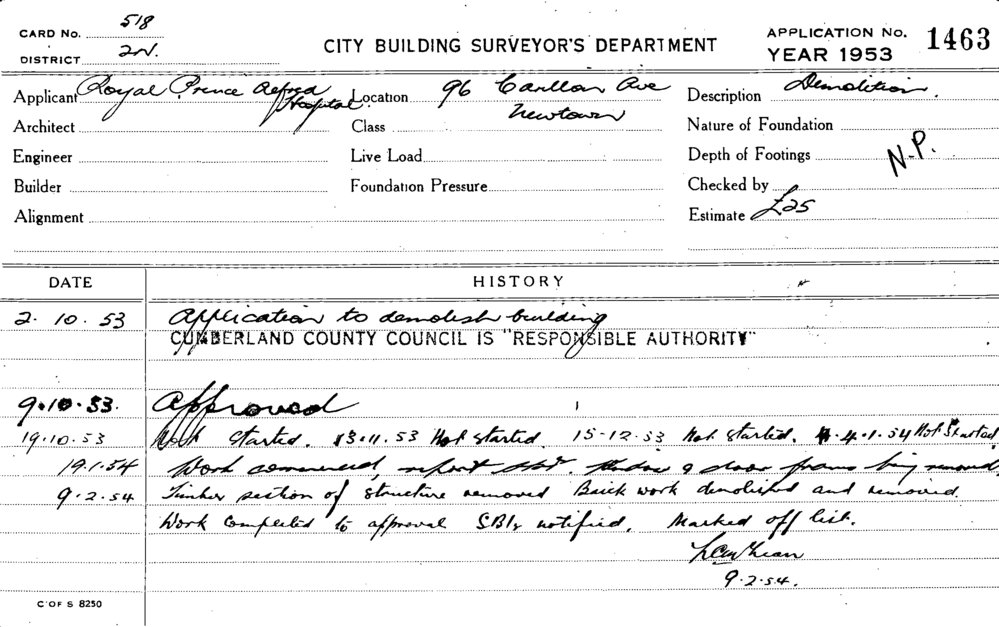 CARD No. 518
DISTRICT 2N.
CITY BUILDING SURVEYOR'S DEPARTMENT
APPLICATION No. 1463
YEAR 1953
Applicant Royal Prince Alfred Hospital
Location 96 Carillon Ave Newtown
Description Demolition.
Architect
Class
Nature of Foundation
Engineer
Live Load
Depth of Footings
N.P.
Builder
Foundation Pressure
Checked by
Alignment
Estimate £25
DATE HISTORY
2. 10. 53 Application to demolish building
CUMBERLAND COUNTY COUNCIL IS "RESPONSIBLE AUTHORITY"
9.10.53. Approved
19.10.53 Not started. 13.11.53 Not started. 15-12-53 Not started. 4.1.54 Not Started
19.1.54 Work commenced, report door frame being removed.
9.2.54 Timber section of structure removed Brick work demolished and removed.
Work completed to approval notified. Marked off list.
9.2.54.
C OF S 8250